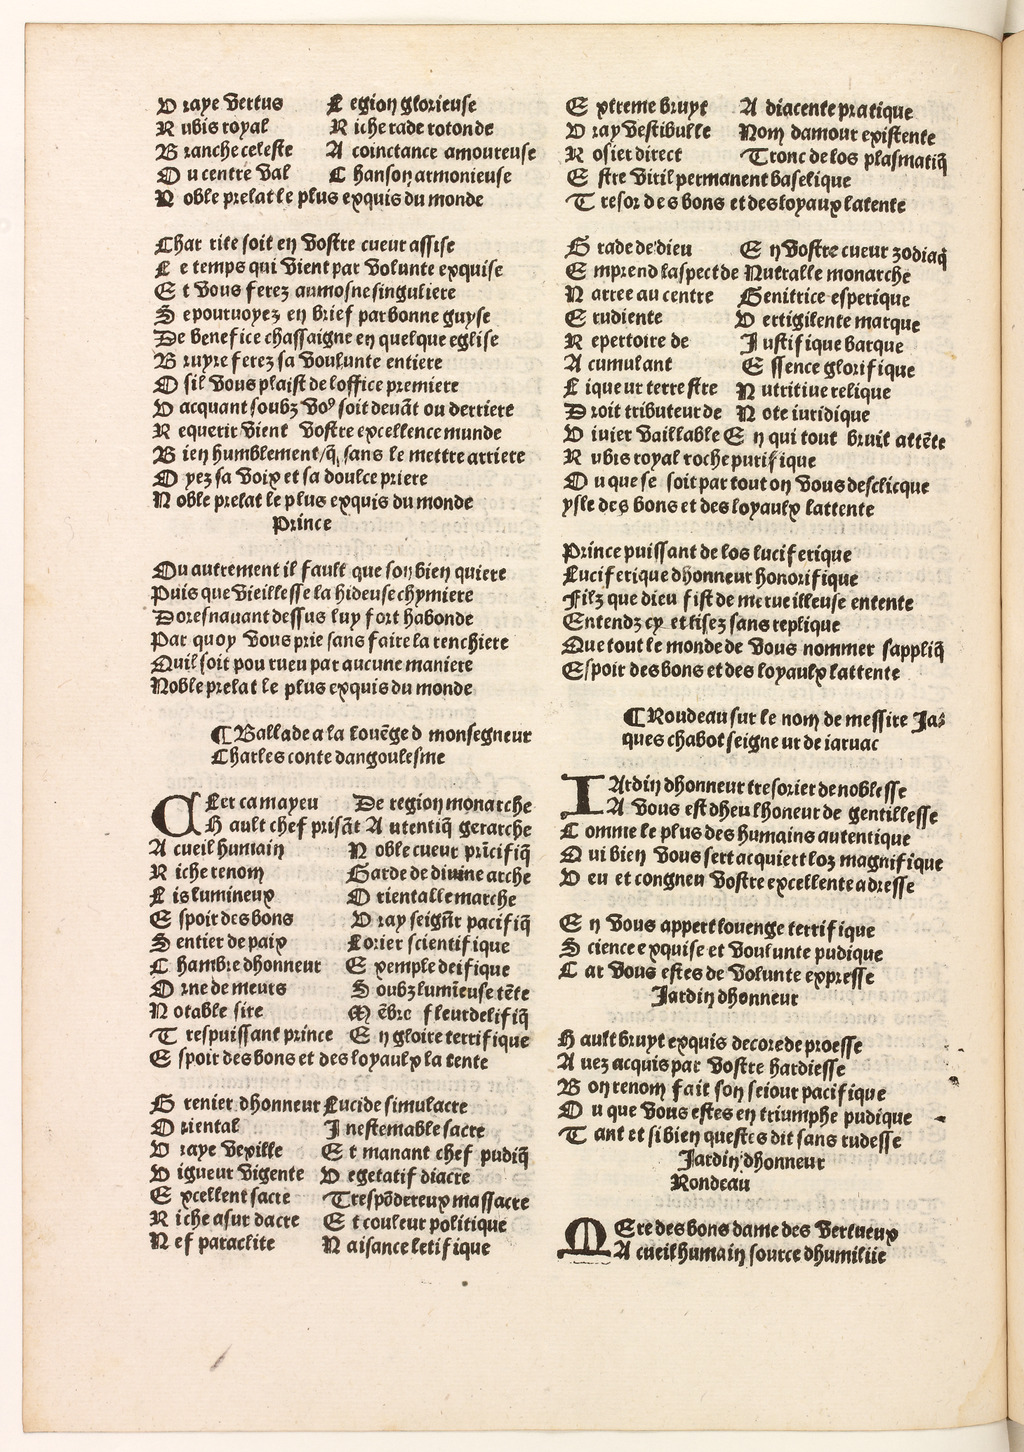 Vraye vertus Legion glorieuse
Rubis royal Riche rade rotonde
Branche celeste Acoinctance amoureuse
Ou centre val Chanson armonieuse
Noble prelat le plus exquis du monde
Charrite soit en vostre cueur assise
Le temps qui vient par volunte exquise
Et vous ferez aumosne singuliere
Se pouruoyez en brief par bonne guyse
De benefice chassaigne en quelque eglise
Bruyre ferez sa voulunte entiere
O sil vous plaist de loffice premiere
Vacquant soubz voꝰ soit deuāt ou derriere
Requerir vient vostre excellence munde
Bien humblement/q̄ sans le mettre arriere
Oyez sa voix et sa doulce priere
Noble prelat le plus exquis du monde
Prince
Ou autrement il fault que son bien quiere
Puis que vieillesse la hideuse chymiere
Doresnauant dessus luy fort habonde
Par quoy vous prie sans faire la renchiere
Quil soit pourueu par aucune maniere
Noble prelat le plus exquis du monde
¶Ballade a la louēge d monsegneur
Charles conte dangoulesme
CLer camayeu De region monarche
Hault chef prisāt Autentiq̄ gerarche
Acueil humain Noble cueur prīcifiq̄
Riche renom Garde de divine arche
Lis lumineux Orientalle marche
Espoir des bons Vray seignr̄ pacifiq̄
Sentier de paix Lorier scientifique
Chambre dhonneur Exemple deifique
Orne de meurs Soubz lumīeuse tēte
Notable sire Mēbre fleurdelifiq̄
Trespuissant prince En gloire terrifique
Espoir des bons et des loyaulx la tente
Grenier dhonneur Lucide simulacre
Oriental Inestemable sacre
Vraye vexille Et manant chef pudiq̄
Vigueur vigente Vegetatif diacre
Excellent sacre Trespōdereux massacre
Riche asur dacre Et couleur politique
Nef paraclite Naisance letifique
Extreme bruyt Adiacente pratique
Vray vestibulle Nom damour existente
Rosier direct Tronc de los plasmatiq̄
Estre viril permanent baselique
Tresor des bons et des loyaux latente
Grade de dieu En vostre cueur zodiaq̄
Emprend laspect de Nutralle monarche
Narree au centre Genitrice esperique
Erudiente Vertigilente marque
Repertoire de Justifique barque
Acumulant Essence glorifique
Liqueur terrestre Nutritiue relique
Droit tributeur de Note iuridique
Viuier vaillable En qui tout bruit attēte
Rubis royal roche purifique
Ou que se soit par tout on vous desclicque
ysle des bons et des loyaulx lattente
Prince puissant de los luciferique
Luciferique dhonneur honorifique
Filz que dieu fist de merueilleuse entente
Entendz cy et lisez sans replique
Que tout le monde de vous nommer sappliq̄
Espoir des bons et des loyaulx lattente
¶Roudeau sur le nom de messire Ja⸗
ques chabot seigneur de iaruac
IArdin dhonneur tresorier de noblesse
A vous est dheu lhoneur de gentillesse
Comme le plus des humains autentique
Qui bien vous sert acquiert loz magnifique
Veu et congneu vostre excellente adresse
En vous appert louenge terrifique
Science exquise et voulunte pudique
Car vous estes de volunte expresse
Jardin dhonneur
Hault bruyt exquis decore de proesse
Auez acquis par vostre hardiesse
Bon renom fait son seiour pacifique
Ou que vous estes en triumphe pudique
Tant et si bien questes dit sans rudesse
Jardin dhonneur
Rondeau
MEre des bons dame des vertueux
Acueil humain source dhumiliie